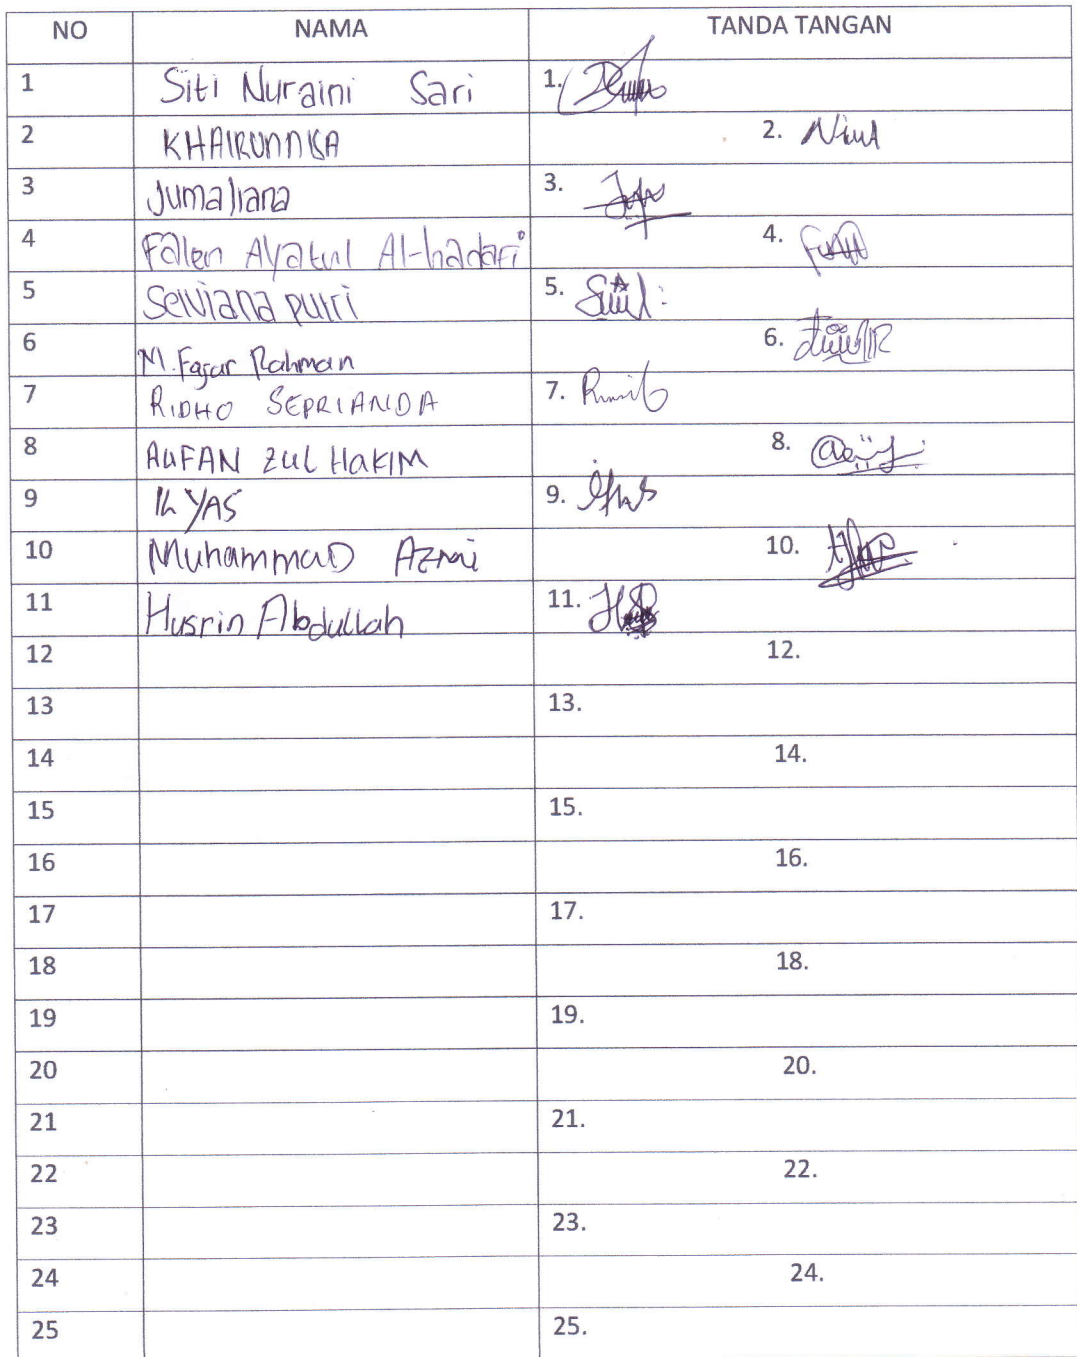 NO NAMA TANDA TANGAN
1 Siti Nuraini Sari 1.
2 KHAIRUNNISA 2.
3 Jumaliana 3.
4 Falen Ayatul Al-hadafi 4.
5 Selviana putri 5.
6 M. Fajar Rahman 6.
7 RIDHO SEPRIANDA 7.
8 AUFAN ZUL HAKIM 8.
9 ILYAS 9.
10 MuhammaD Azmi 10.
11 Husrin Abdullah 11.
12 12.
13 13.
14 14.
15 15.
16 16.
17 17.
18 18.
19 19.
20 20.
21 21.
22 22.
23 23.
24 24.
25 25.